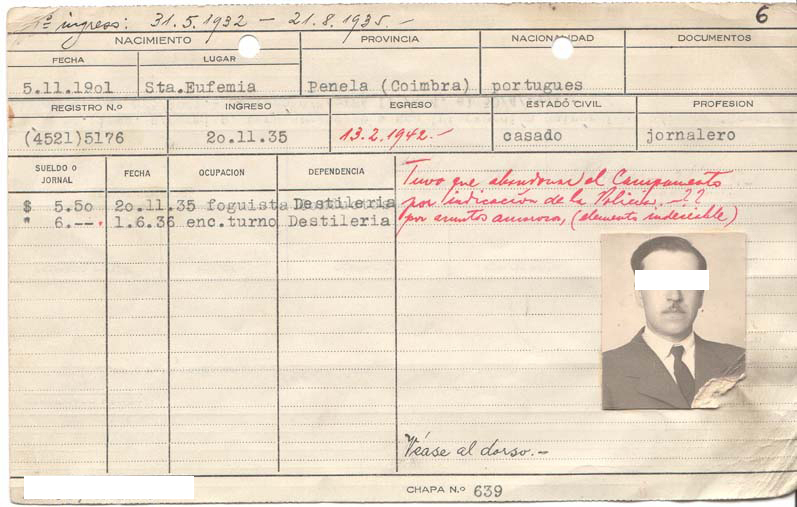 1º ingreso: 31.5.1932 — 21.8.1935.-
6
NACIMIENTO PROVINCIA NACIONALIDAD DOCUMENTOS
FECHA LUGAR
5.11.19o1 Sta.Eufemia Penela (Coimbra) portugues
REGISTRO N.º INGRESO EGRESO ESTADO CIVIL PROFESION
(4521)5176 2o.11.35 13.2.1942.- casado jornalero
SUELDO O JORNAL FECHA OCUPACION DEPENDENCIA
$ 5.5o 2o.11.35 foguista Destileria
" 6.-- 1.6.36 enc.turno Destileria
Tuvo que abandonar el Campamento
por indicación de la Policia. —??
por asuntos amorosos, (elemento indeseable)
Véase al dorso.-
CHAPA N.º 639